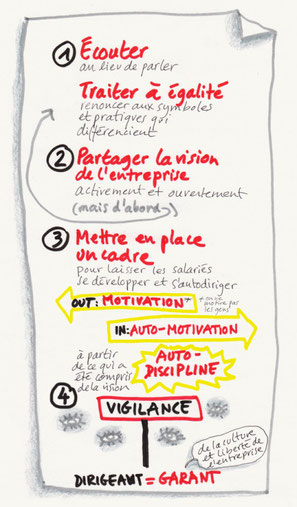 1 Écouter
au lieu de parler
Traiter à égalité
renoncer aux symboles
et pratiques qui
différencient
2 Partager la vision
de l'entreprise
activement et ouvertement
(mais d'abord →)
3 Mettre en place
un cadre
pour laisser les salariés
se développer et s'autodiriger
OUT: MOTIVATION*
* on ne
motive pas
les gens
IN: AUTO-MOTIVATION
à partir
de ce qui a
été compris
de la vision
AUTO-
DISCIPLINE
4
VIGILANCE
de la culture
et liberté de
l'entreprise
DIRIGEANT = GARANT